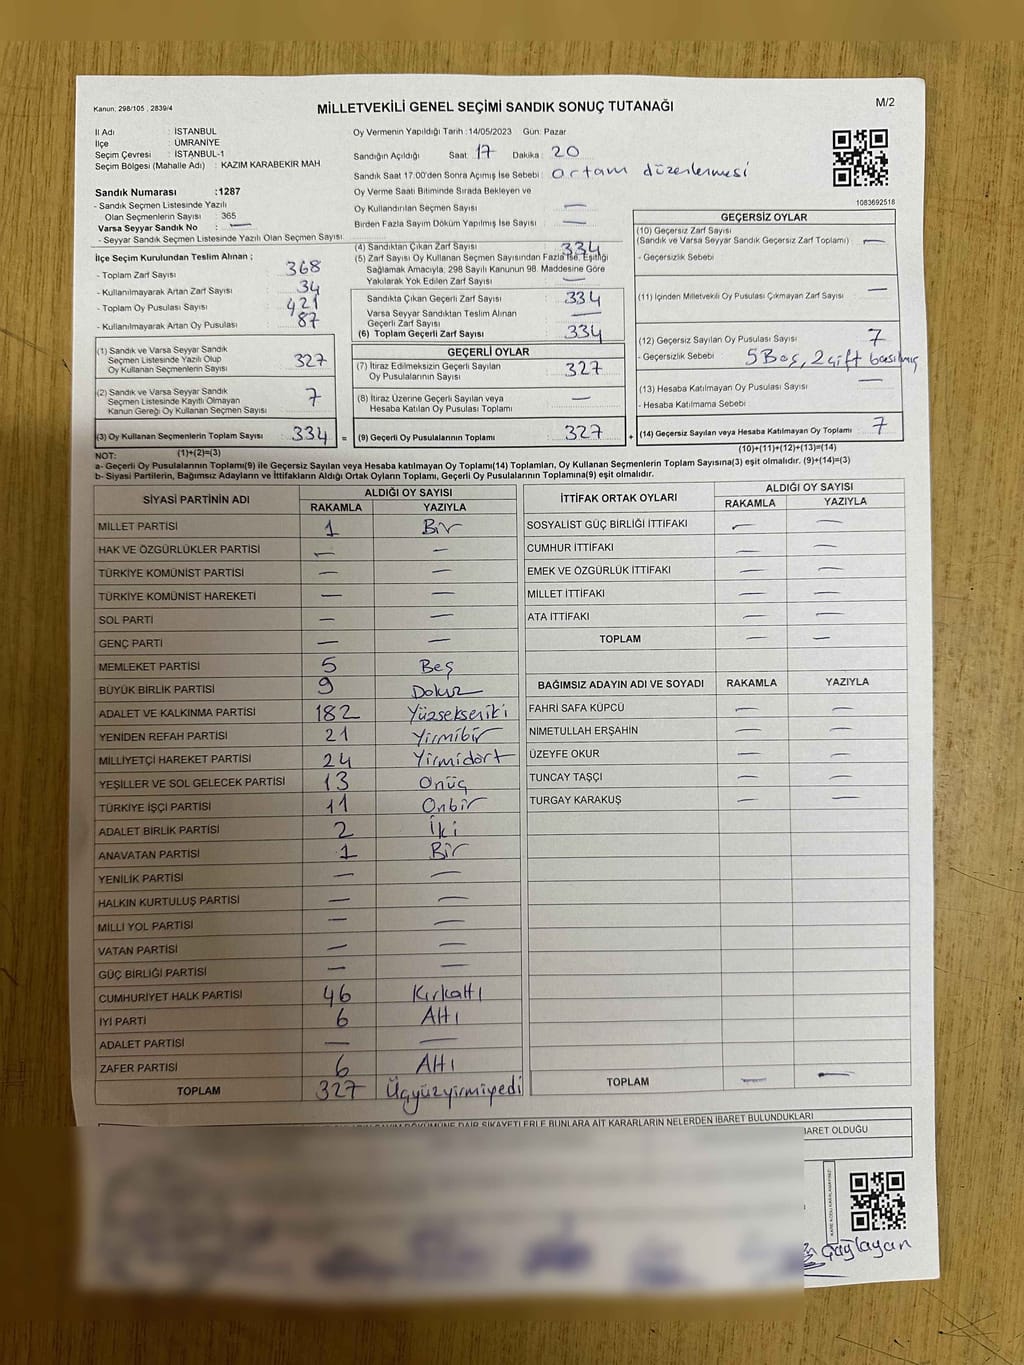 Kanun: 298/105 , 2839/4
MİLLETVEKİLİ GENEL SEÇİMİ SANDIK SONUÇ TUTANAĞI
M/2
İl Adı : İSTANBUL
İlçe : ÜMRANİYE
Seçim Çevresi : İSTANBUL-1
Seçim Bölgesi (Mahalle Adı) : KAZIM KARABEKİR MAH
Oy Vermenin Yapıldığı Tarih :14/05/2023 Gün: Pazar
Sandığın Açıldığı Saat: 17 Dakika : 20
Sandık Saat 17:00'den Sonra Açımış İse Sebebi : ortam düzenlenmesi
Oy Verme Saati Bitiminde Sırada Bekleyen ve
Oy Kullandırılan Seçmen Sayısı : —
Birden Fazla Sayım Döküm Yapılmış İse Sayısı : —
1083692516
Sandık Numarası :1287
- Sandık Seçmen Listesinde Yazılı
Olan Seçmenlerin Sayısı : 365
Varsa Seyyar Sandık No : —
- Seyyar Sandık Seçmen Listesinde Yazılı Olan Seçmen Sayısı:
İlçe Seçim Kurulundan Teslim Alınan ;
- Toplam Zarf Sayısı : 368
- Kullanılmayarak Artan Zarf Sayısı : 34
- Toplam Oy Pusulası Sayısı : 421
- Kullanılmayarak Artan Oy Pusulası : 87
(1) Sandık ve Varsa Seyyar Sandık
Seçmen Listesinde Yazılı Olup
Oy Kullanan Seçmenlerin Sayısı : 327
(2) Sandık ve Varsa Seyyar Sandık
Seçmen Listesinde Kayıtlı Olmayan
Kanun Gereği Oy Kullanan Seçmen Sayısı : 7
(3) Oy Kullanan Seçmenlerin Toplam Sayısı : 334 =
(1)+(2)=(3)
(4) Sandıktan Çıkan Zarf Sayısı : 334
(5) Zarf Sayısı Oy Kullanan Seçmen Sayısından Fazla İse, Eşitliği
Sağlamak Amacıyla, 298 Sayılı Kanunun 98. Maddesine Göre
Yakılarak Yok Edilen Zarf Sayısı : —
Sandıkta Çıkan Geçerli Zarf Sayısı : 334
Varsa Seyyar Sandıktan Teslim Alınan
Geçerli Zarf Sayısı : —
(6) Toplam Geçerli Zarf Sayısı : 334
GEÇERLİ OYLAR
(7) İtiraz Edilmeksizin Geçerli Sayılan
Oy Pusulalarının Sayısı : 327
(8) İtiraz Üzerine Geçerli Sayılan veya
Hesaba Katılan Oy Pusulası Toplamı : —
(9) Geçerli Oy Pusulalarının Toplamı : 327 +
GEÇERSİZ OYLAR
(10) Geçersiz Zarf Sayısı
(Sandık ve Varsa Seyyar Sandık Geçersiz Zarf Toplamı) : —
- Geçersizlik Sebebi :
(11) İçinden Milletvekili Oy Pusulası Çıkmayan Zarf Sayısı : —
(12) Geçersiz Sayılan Oy Pusulası Sayısı : 7
- Geçersizlik Sebebi : 5 Boş, 2 çift basılmış
(13) Hesaba Katılmayan Oy Pusulası Sayısı : —
- Hesaba Katılmama Sebebi :
(14) Geçersiz Sayılan veya Hesaba Katılmayan Oy Toplamı : 7
(10)+(11)+(12)+(13)=(14)
NOT:
a- Geçerli Oy Pusulalarının Toplamı(9) ile Geçersiz Sayılan veya Hesaba katılmayan Oy Toplamı(14) Toplamları, Oy Kullanan Seçmenlerin Toplam Sayısına(3) eşit olmalıdır. (9)+(14)=(3)
b- Siyasi Partilerin, Bağımsız Adayların ve İttifakların Aldığı Ortak Oyların Toplamı, Geçerli Oy Pusulalarının Toplamına(9) eşit olmalıdır.
SİYASİ PARTİNİN ADI ALDIĞI OY SAYISI
RAKAMLA YAZIYLA
MİLLET PARTİSİ 1 Bir
HAK VE ÖZGÜRLÜKLER PARTİSİ — —
TÜRKİYE KOMÜNİST PARTİSİ — —
TÜRKİYE KOMÜNİST HAREKETİ — —
SOL PARTİ — —
GENÇ PARTİ — —
MEMLEKET PARTİSİ 5 Beş
BÜYÜK BİRLİK PARTİSİ 9 Dokuz
ADALET VE KALKINMA PARTİSİ 182 Yüzsekseniki
YENİDEN REFAH PARTİSİ 21 Yirmibir
MİLLİYETÇİ HAREKET PARTİSİ 24 Yirmidört
YEŞİLLER VE SOL GELECEK PARTİSİ 13 Onüç
TÜRKİYE İŞÇİ PARTİSİ 11 Onbir
ADALET BİRLİK PARTİSİ 2 İki
ANAVATAN PARTİSİ 1 Bir
YENİLİK PARTİSİ — —
HALKIN KURTULUŞ PARTİSİ — —
MİLLİ YOL PARTİSİ — —
VATAN PARTİSİ — —
GÜÇ BİRLİĞİ PARTİSİ — —
CUMHURİYET HALK PARTİSİ 46 Kırkaltı
İYİ PARTİ 6 Altı
ADALET PARTİSİ — —
ZAFER PARTİSİ 6 Altı
TOPLAM 327 Üçyüzyirmiyedi
İTTİFAK ORTAK OYLARI ALDIĞI OY SAYISI
RAKAMLA YAZIYLA
SOSYALİST GÜÇ BİRLİĞİ İTTİFAKI — —
CUMHUR İTTİFAKI — —
EMEK VE ÖZGÜRLÜK İTTİFAKI — —
MİLLET İTTİFAKI — —
ATA İTTİFAKI — —
TOPLAM — —
BAĞIMSIZ ADAYIN ADI VE SOYADI RAKAMLA YAZIYLA
FAHRİ SAFA KÜPCÜ — —
NİMETULLAH ERŞAHİN — —
ÜZEYFE OKUR — —
TUNCAY TAŞÇI — —
TURGAY KARAKUŞ — —
TOPLAM — —
SAYIM DÖKÜMÜNE DAİR ŞİKAYETLERLE BUNLARA AİT KARARLARIN NELERDEN İBARET BULUNDUKLARI
İBARET OLDUĞU
Çağlayan